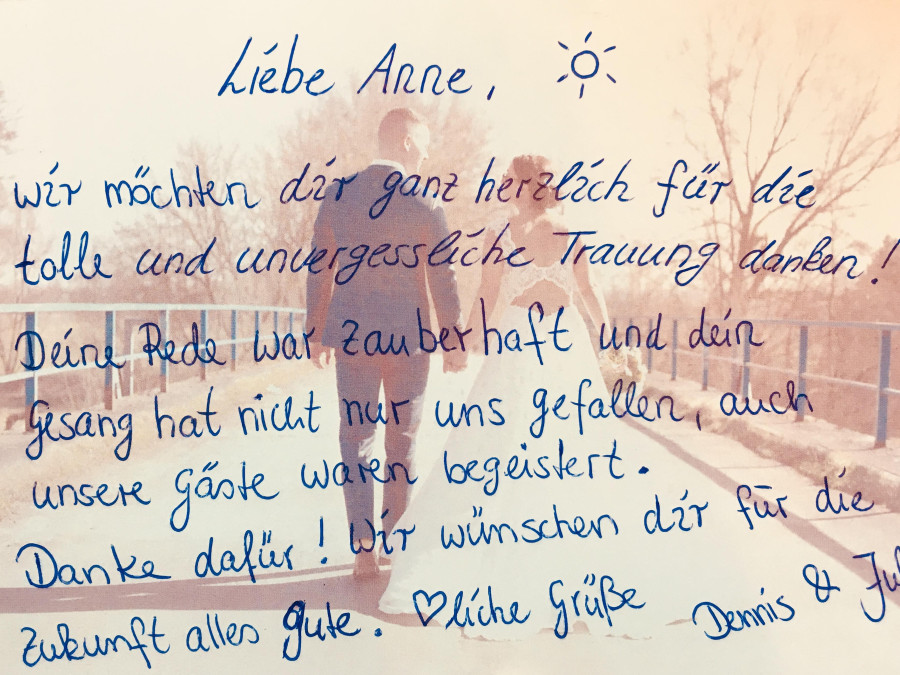 Liebe Anne,
wir möchten dir ganz herzlich für die
tolle und unvergessliche Trauung danken!
Deine Rede war zauberhaft und dein
Gesang hat nicht nur uns gefallen, auch
unsere Gäste waren begeistert.
Danke dafür! Wir wünschen dir für die
Zukunft alles gute. ♡liche Grüße Dennis &